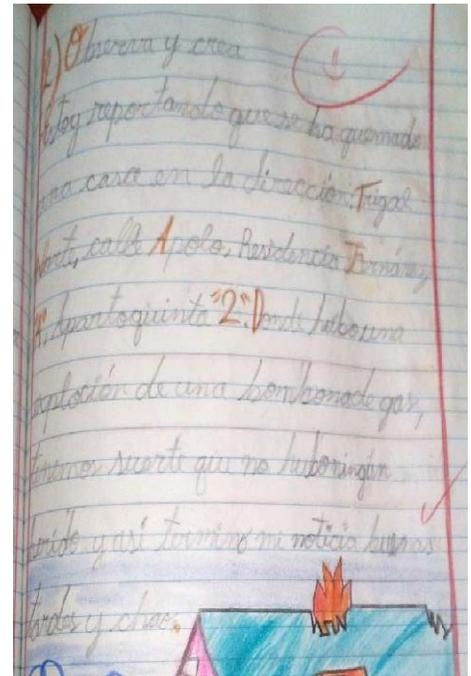 2) Observa y crea
Estoy reportando que se ha quemado
una casa en la dirección: Trigal
Norte, calle Apolo, Residencia
"A", Apartoquinta "2". Donde hubo una
exploción de una bombona de gas,
tenemos suerte que no hubo ningún
herido y así termino mi noticia buenas
tardes y chao.